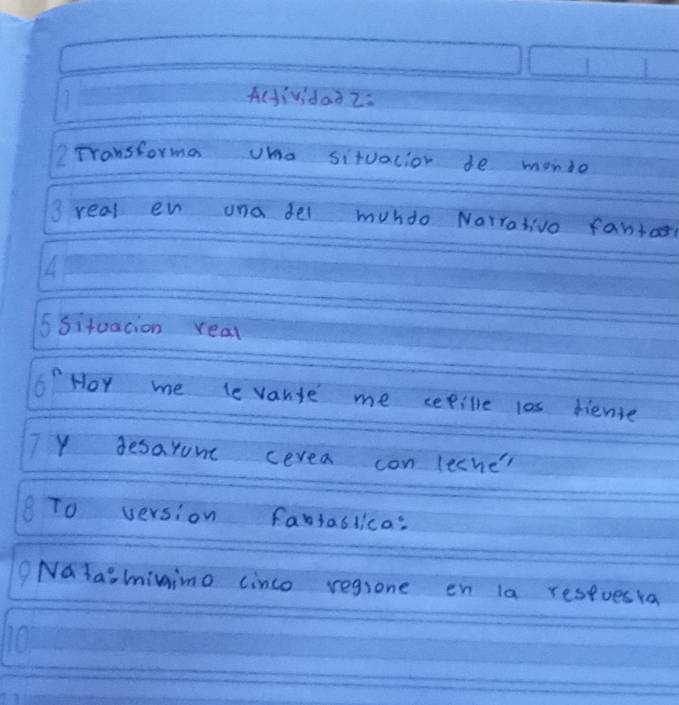 1 Actividad 2:
2 Transforma una situacion de mondo
3 real en una del mundo Narrativo fantasti
4
5 Situacion real
6 "Hoy me levanté me cepille los diente
7 y desayune cerea con leche"
8 Tu version fantastica:
9 Nata: minimo cinco regione en la respuesta
10